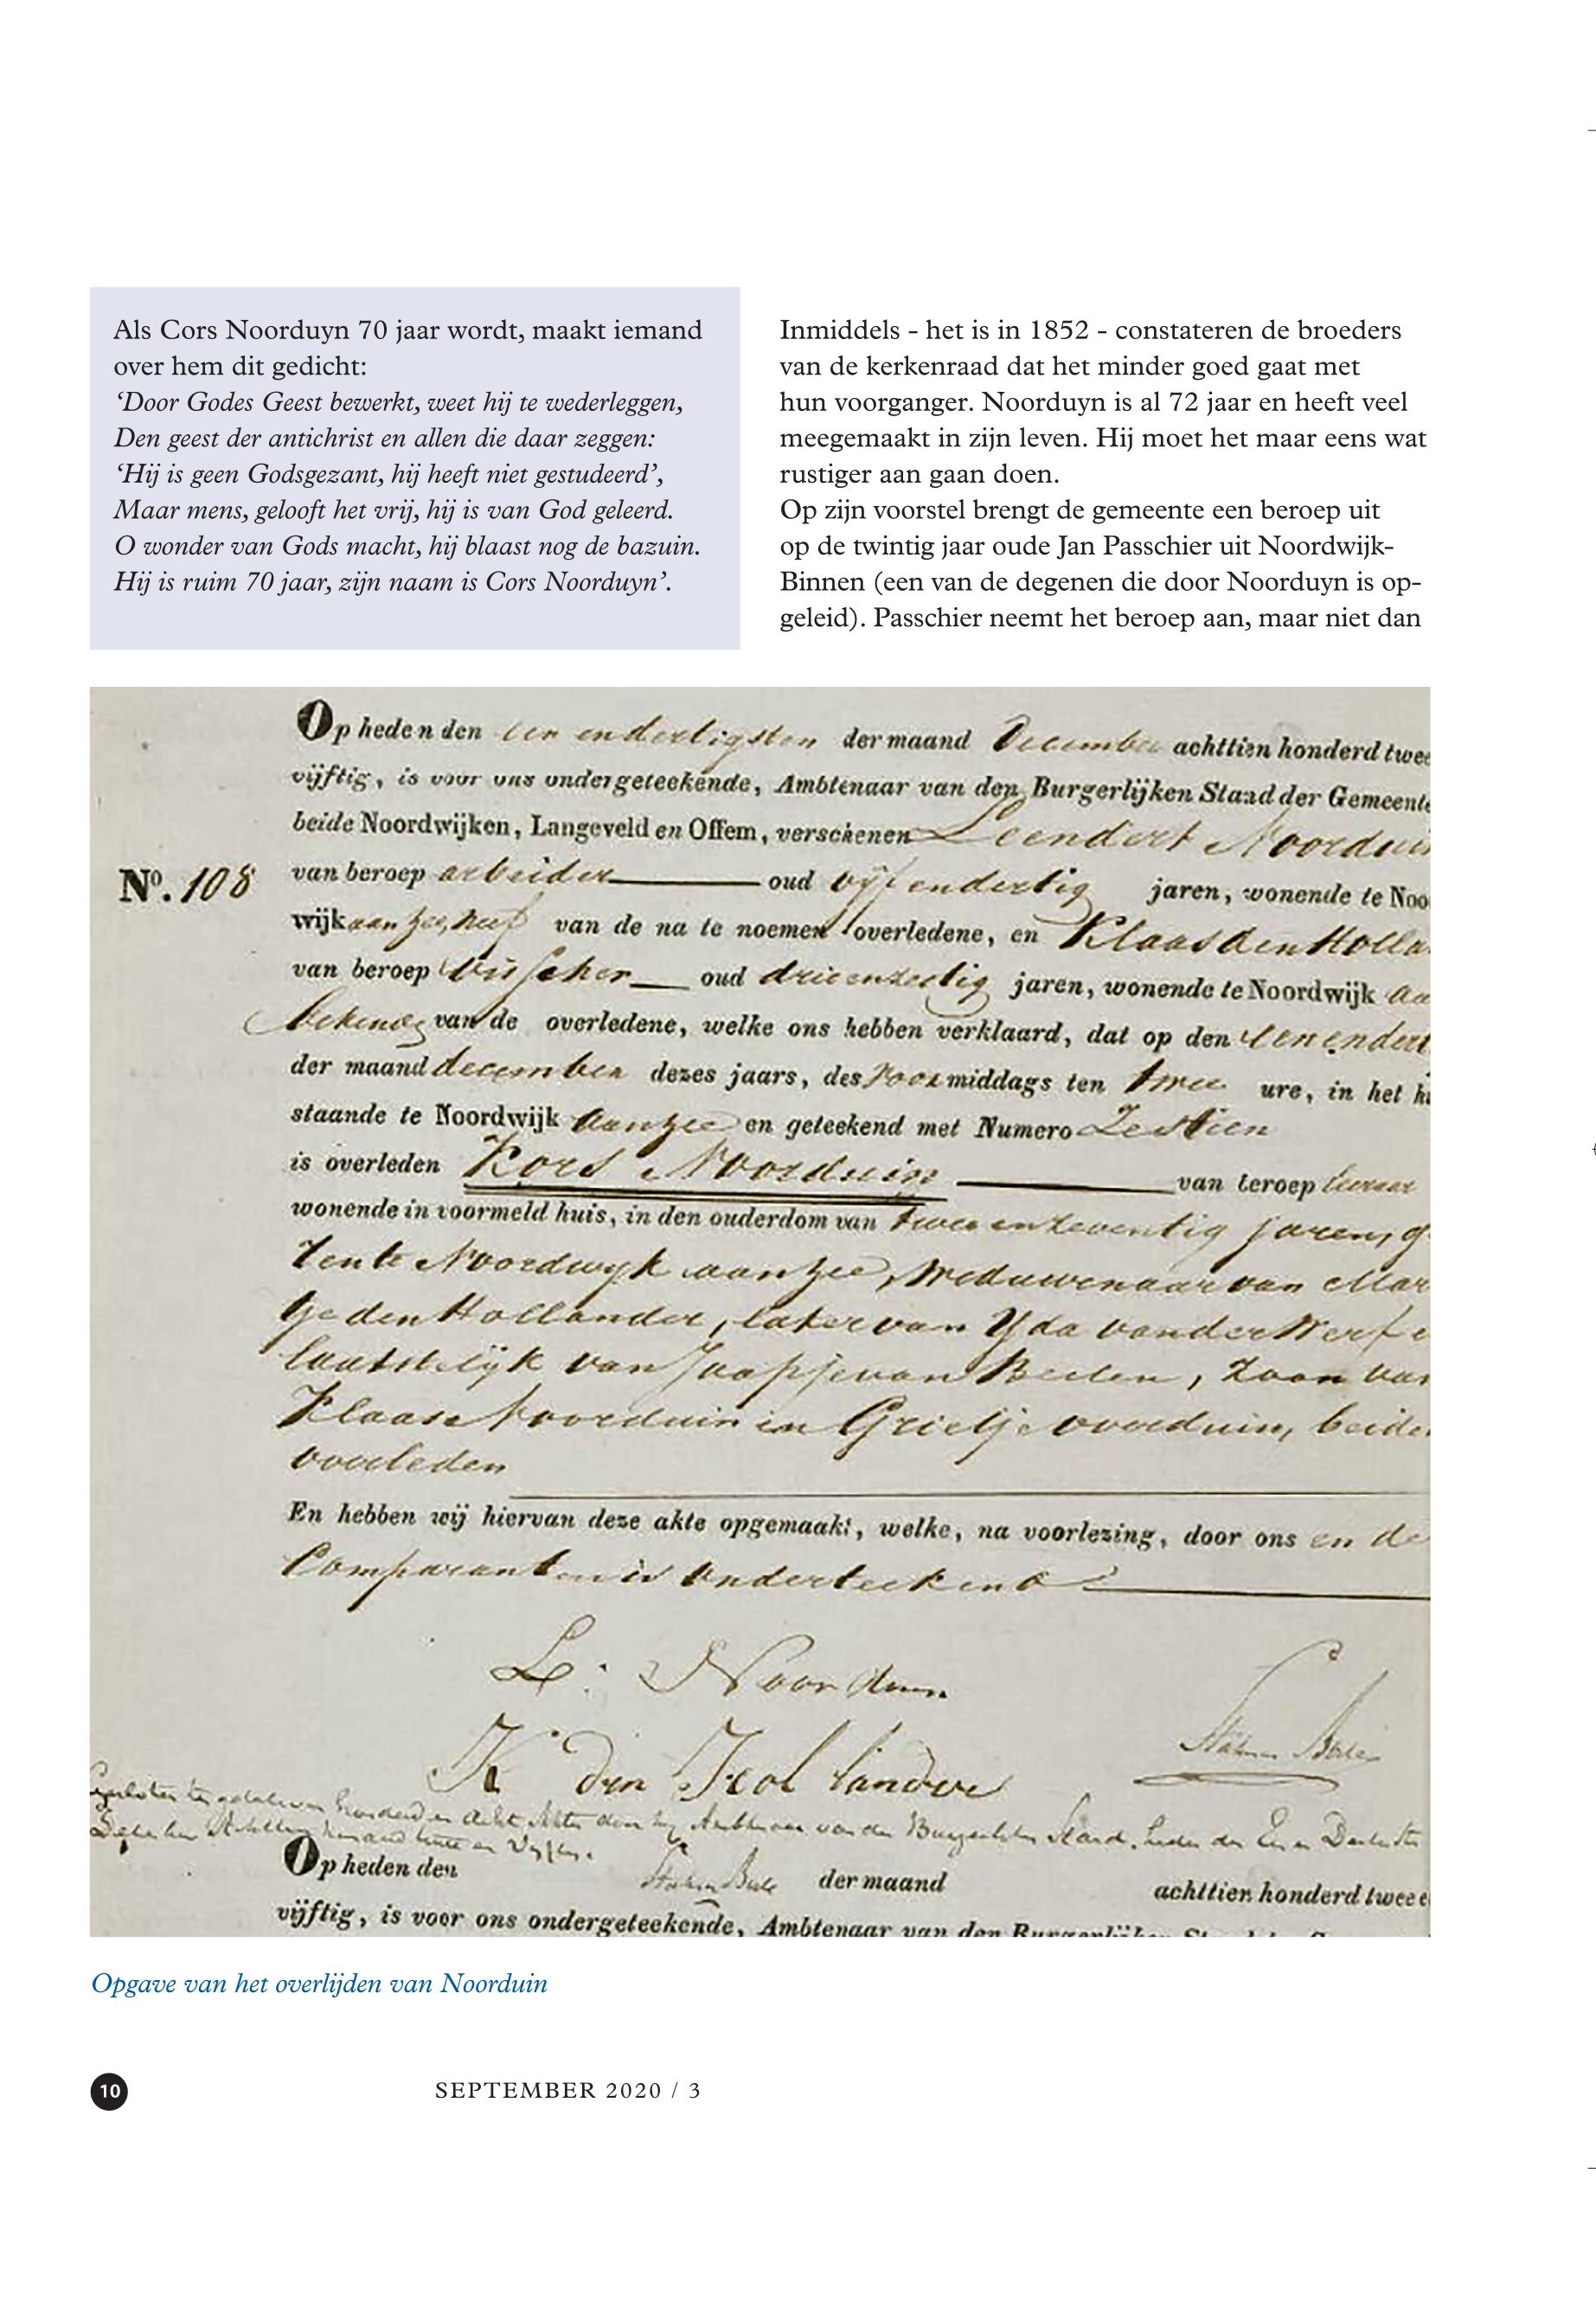 Als Cors Noorduyn 70 jaar wordt, maakt iemand
over hem dit gedicht:
‘Door Godes Geest bewerkt, weet hij te wederleggen,
Den geest der antichrist en allen die daar zeggen:
‘Hij is geen Godsgezant, hij heeft niet gestudeerd’,
Maar mens, gelooft het vrij, hij is van God geleerd.
O wonder van Gods macht, hij blaast nog de bazuin.
Hij is ruim 70 jaar, zijn naam is Cors Noorduyn’.
Inmiddels - het is in 1852 - constateren de broeders
van de kerkenraad dat het minder goed gaat met
hun voorganger. Noorduyn is al 72 jaar en heeft veel
meegemaakt in zijn leven. Hij moet het maar eens wat
rustiger aan gaan doen.
Op zijn voorstel brengt de gemeente een beroep uit
op de twintig jaar oude Jan Passchier uit Noordwijk-
Binnen (een van de degenen die door Noorduyn is op-
geleid). Passchier neemt het beroep aan, maar niet dan
Op heden den een en dertigsten der maand December achttien honderd twee
vijftig, is voor ons ondergeteekende, Ambtenaar van den Burgerlijken Stand der Gemeente
beide Noordwijken, Langeveld en Offem, verschenen Leendert Noordui
No. 108
van beroep arbeider oud vijf en dertig jaren, wonende te Noo
wijk aan Zee, neef van de na te noemen overledene, en Klaas den Holla
van beroep visscher oud drie en zestig jaren, wonende te Noordwijk aa
bekende van de overledene, welke ons hebben verklaard, dat op den een en dert
der maand december dezes jaars, des voormiddags ten twee ure, in het h
staande te Noordwijk aan Zee en geteekend met Numero Zestien
is overleden Kors Noorduin van beroep leeraar
wonende in voormeld huis, in den ouderdom van twee en zeventig jaren, g
te Noordwyk aan Zee, Weduwenaar van Mar
tje den Hollander, later van Yda van der Werf e
laatstelijk van Jaapje van Beelen, Zoon van
Klaas Noorduin en Grietje Noorduin, beide
overleden
En hebben wij hiervan deze akte opgemaakt, welke, na voorlezing, door ons en de
Comparanten is onderteekend
L. Noorduin
K den Hollander
Op heden den der maand achttien honderd twee e
vijftig, is voor ons ondergeteekende, Ambtenaar van den
Opgave van het overlijden van Noorduin
10
SEPTEMBER 2020 / 3